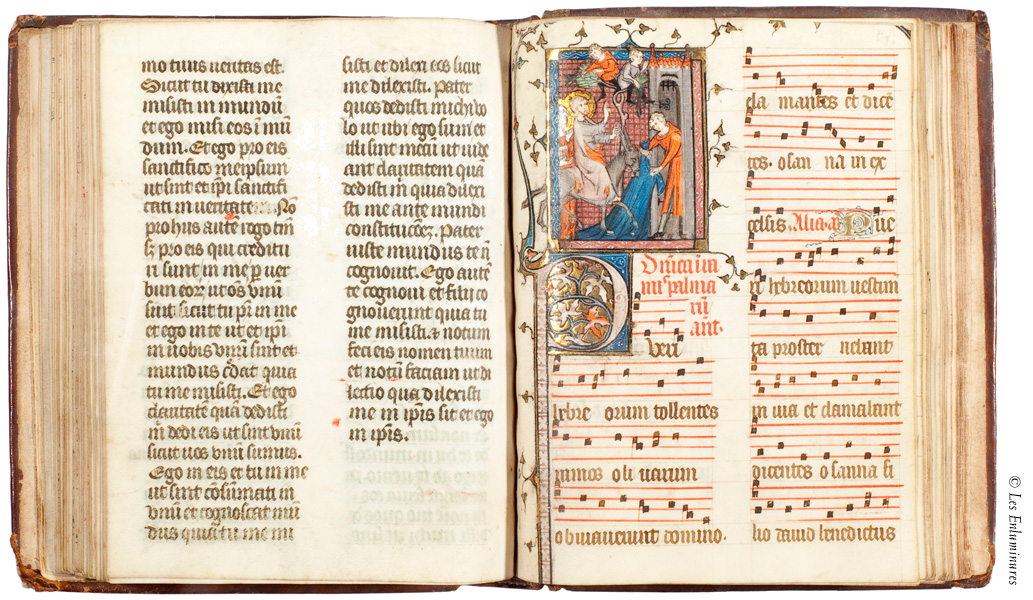 mo tuus ueritas est.
Sicut tu dixisti me
misisti in mundū
et ego misi eos ī mū
dum. Et ego pro eis
sanctifico meipsum
ut sint et ip̄i sanctifi
cati in ueritate. Nō
pro hus aute rogo tm̄
sꝫ pro eis qui credituͥ
ri sunt in me ꝑ uer
bum eoꝝ ut os vnū
sint. sicut tu pr̄ in me
et ego in te ut et ip̄i
in nobis vnū sint et
mundus c̄dat quia
tu me misisti. Et ego
claritatē quā dedisti
m̄ dedi eis ut sint vnū
sicut uos vnū sumus.
Ego in eis et tu in me
ut sint cōsūmati in
vnū et cognoscat mū
dus quia tu me mi
sisti et dilexi eos sicut
me dilexisti. Pater
quos dedisti michi vo
lo ut ubi ego sum et
illi sint mecū ut uide
ant claritatem quā
dedisti m̄ quia dilexi
sti me ante mundi
constitucōeꝫ. Pater
iuste mundus te n̄
cognouit. Ego autē
te cognoui et hii co
gnouerunt quia tu
me misisti. et notum
feci eis nomen tuum
et notū faciam ut di
lectio qua dilexisti
me in ip̄is sit et ego
in ip̄is.
Dn̄ica in ra
mi palma
rū
ant.
Pueri
hebre orum tollentes
ramos oli uarum
obuiauerunt domino.
cla mantes et dicē
tes. osan na in ex
celsis. Alia. a Pue
ri hebreorum uestim
ta proster nebant
in uia et clamabant
dicentes osanna fi
lio dauid benedictus
© Les Enluminures